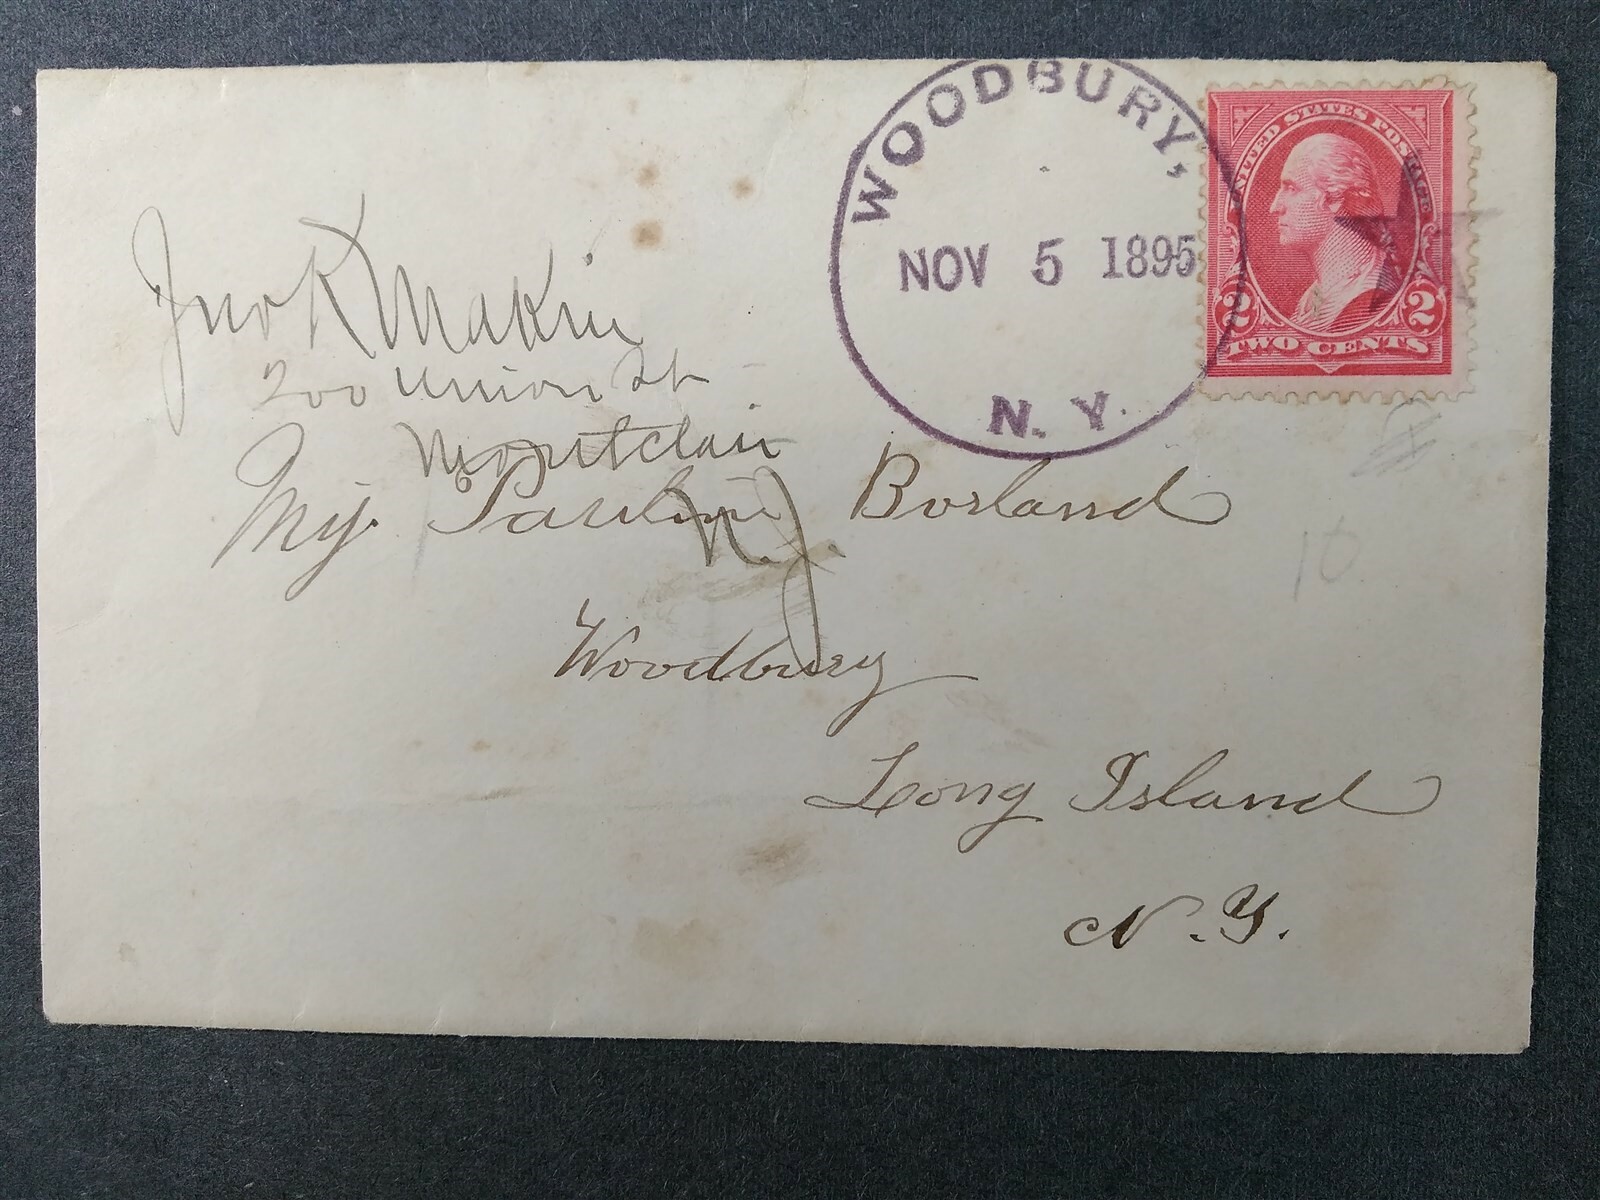 WOODBURY,
NOV 5 1895
N. Y.
UNITED STATES POSTAGE
2 2
TWO CENTS
Jno K Makin
200 Union St
Montclair
N.J.
Borland
Woodbury
Long Island
N.Y.
10